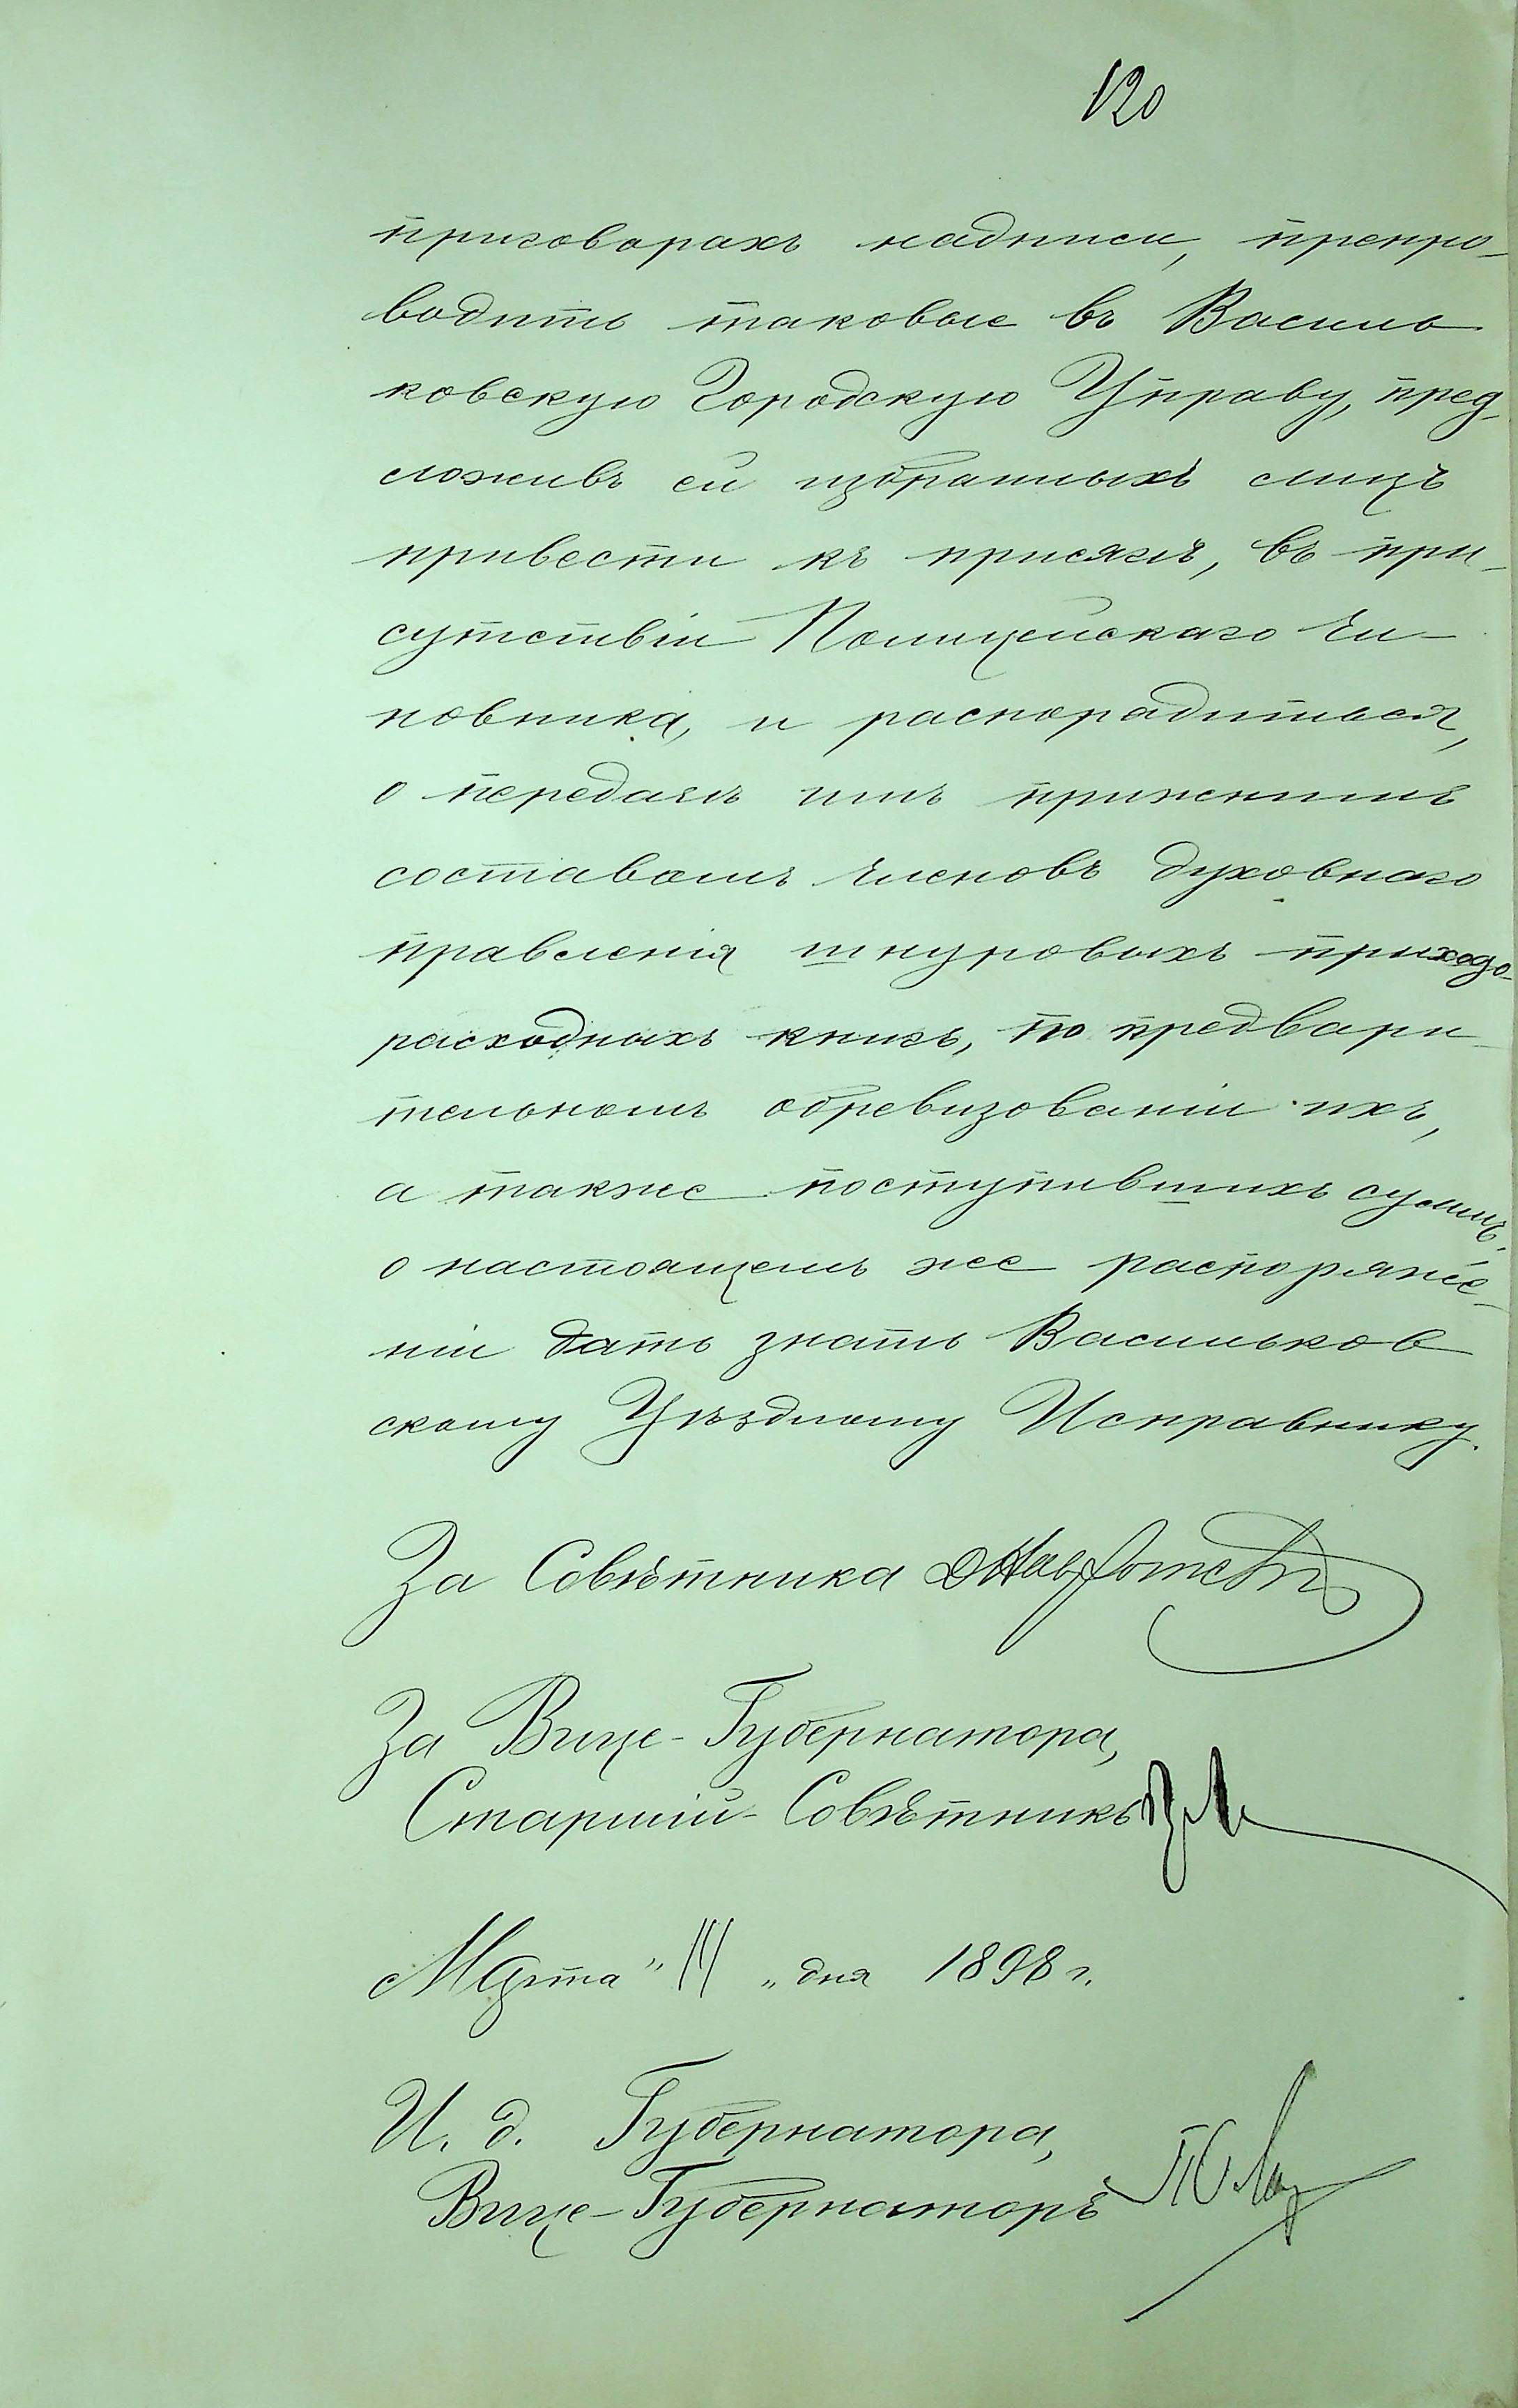 120
приговорахъ надписи, препро-
водить таковые въ Василь
ковскую Городскую Управу, пред-
ложивъ ей избранныхъ лицъ
привести къ присягѣ, въ при-
сутствіи Полицейскаго Чи-
новника, и распорядиться,
о передачѣ имъ прежнимъ
составомъ членовъ духовнаго
правленія шнуровыхъ приходо-
расходныхъ книгъ, по предвари-
тельномъ обревизованіи ихъ,
а также поступившихъ суммъ.
о настоящемъ же распоряже-
ніи дать знать Васильков
скому Уѣздному Исправнику.
За Совѣтника
За Вице-Губернатора,
Старшій Совѣтникъ
Марта " " дня 1898 г.
И. д. Губернатора,
Вице-Губернаторъ